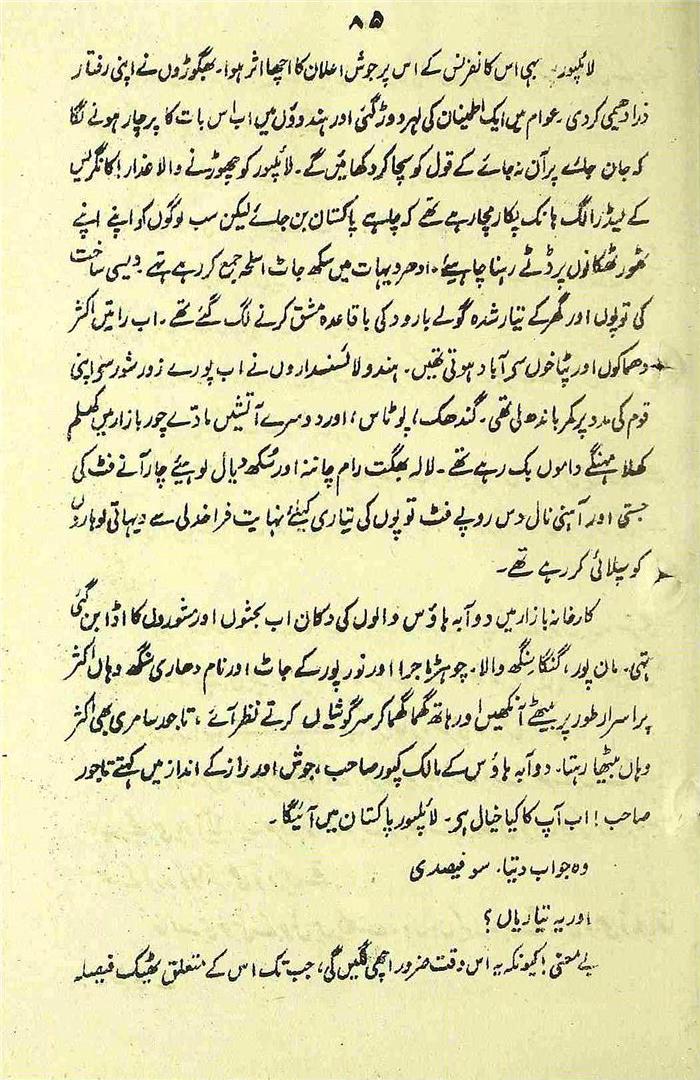 ۸۵
لائلپور۔ یہی اس کانفرنس کے اس پرجوش اعلان کا اچھا اثر ہوا۔ بھگوڑوں نے اپنی رفتار
ذرا دھیمی کردی۔ عوام میں ایک اطمینان کی لہر دوڑ گئی اور ہندوؤں میں اب اس بات کا پرچار ہونے لگا
کہ جان جائے پر آن نہ جائے کے قول کو سچا کر دکھائیں گے۔ لائلپور کو چھوڑنے والا غدار! کانگریس
کے لیڈر الگ ہانک پکار مچا رہے تھے کہ چاہے پاکستان بن جائے لیکن سب لوگوں کو اپنے اپنے
ٹھور ٹھکانوں پر ڈٹے رہنا چاہیئے۔ ادھر دیہات میں سکھ جاٹ اسلحہ جمع کر رہے تھے۔ دیسی ساخت
کی توپوں اور گھر کے تیار شدہ گولے بارود کی باقاعدہ مشق کرنے لگ گئے تھے۔ اب راتیں اکثر
دھماکوں اور پٹاخوں سے آباد ہوتی تھیں۔ ہندو لائسنسداروں نے اب پورے زور شور سے اپنی
قوم کی مدد پر کمر باندھ لی تھی۔ گندھک، پوٹاس، اور دوسرے آتشیں مادّے چور بازار میں کھلم
کھلا مہنگے داموں بک رہے تھے۔ لالہ بھگت رام چاننہ اور سُکھ دیال لوہیئے چار آنے فٹ کی
جستی اور آہنی نال دس روپے فٹ توپوں کی تیاری کیلئے نہایت فراخدلی سے دیہاتی لوہاروں
کو سپلائی کر رہے تھے۔
کارخانہ بازار میں دوآبہ ہاؤس والوں کی دکان اب بحثوں اور مشوروں کا اڈا بن گئی
تھی۔ مان پور، گنگا سنگھ والا۔ چوہڑماجرا اور نور پور کے جاٹ اور نام دھاری سنگھ وہاں اکثر
پراسرار طور پر بیٹھے آنکھیں اور ہاتھ گھما گھما کر سرگوشیاں کرتے نظر آئے، تاجور سامری بھی اکثر
وہاں بیٹھا رہتا۔ دوآبہ ہاؤس کے مالک کپور صاحب، جوش اور راز کے انداز میں کہتے تاجور
صاحب! اب آپ کا کیا خیال ہے۔ لائلپور پاکستان میں آئیگا۔
وہ جواب دیتا۔ سو فیصدی
اور یہ تیاریاں؟
بے معنی! کیونکہ یہ اس وقت ضرور اچھی لگیں گی، جب تک اس کے متعلق ٹھیک فیصلہ